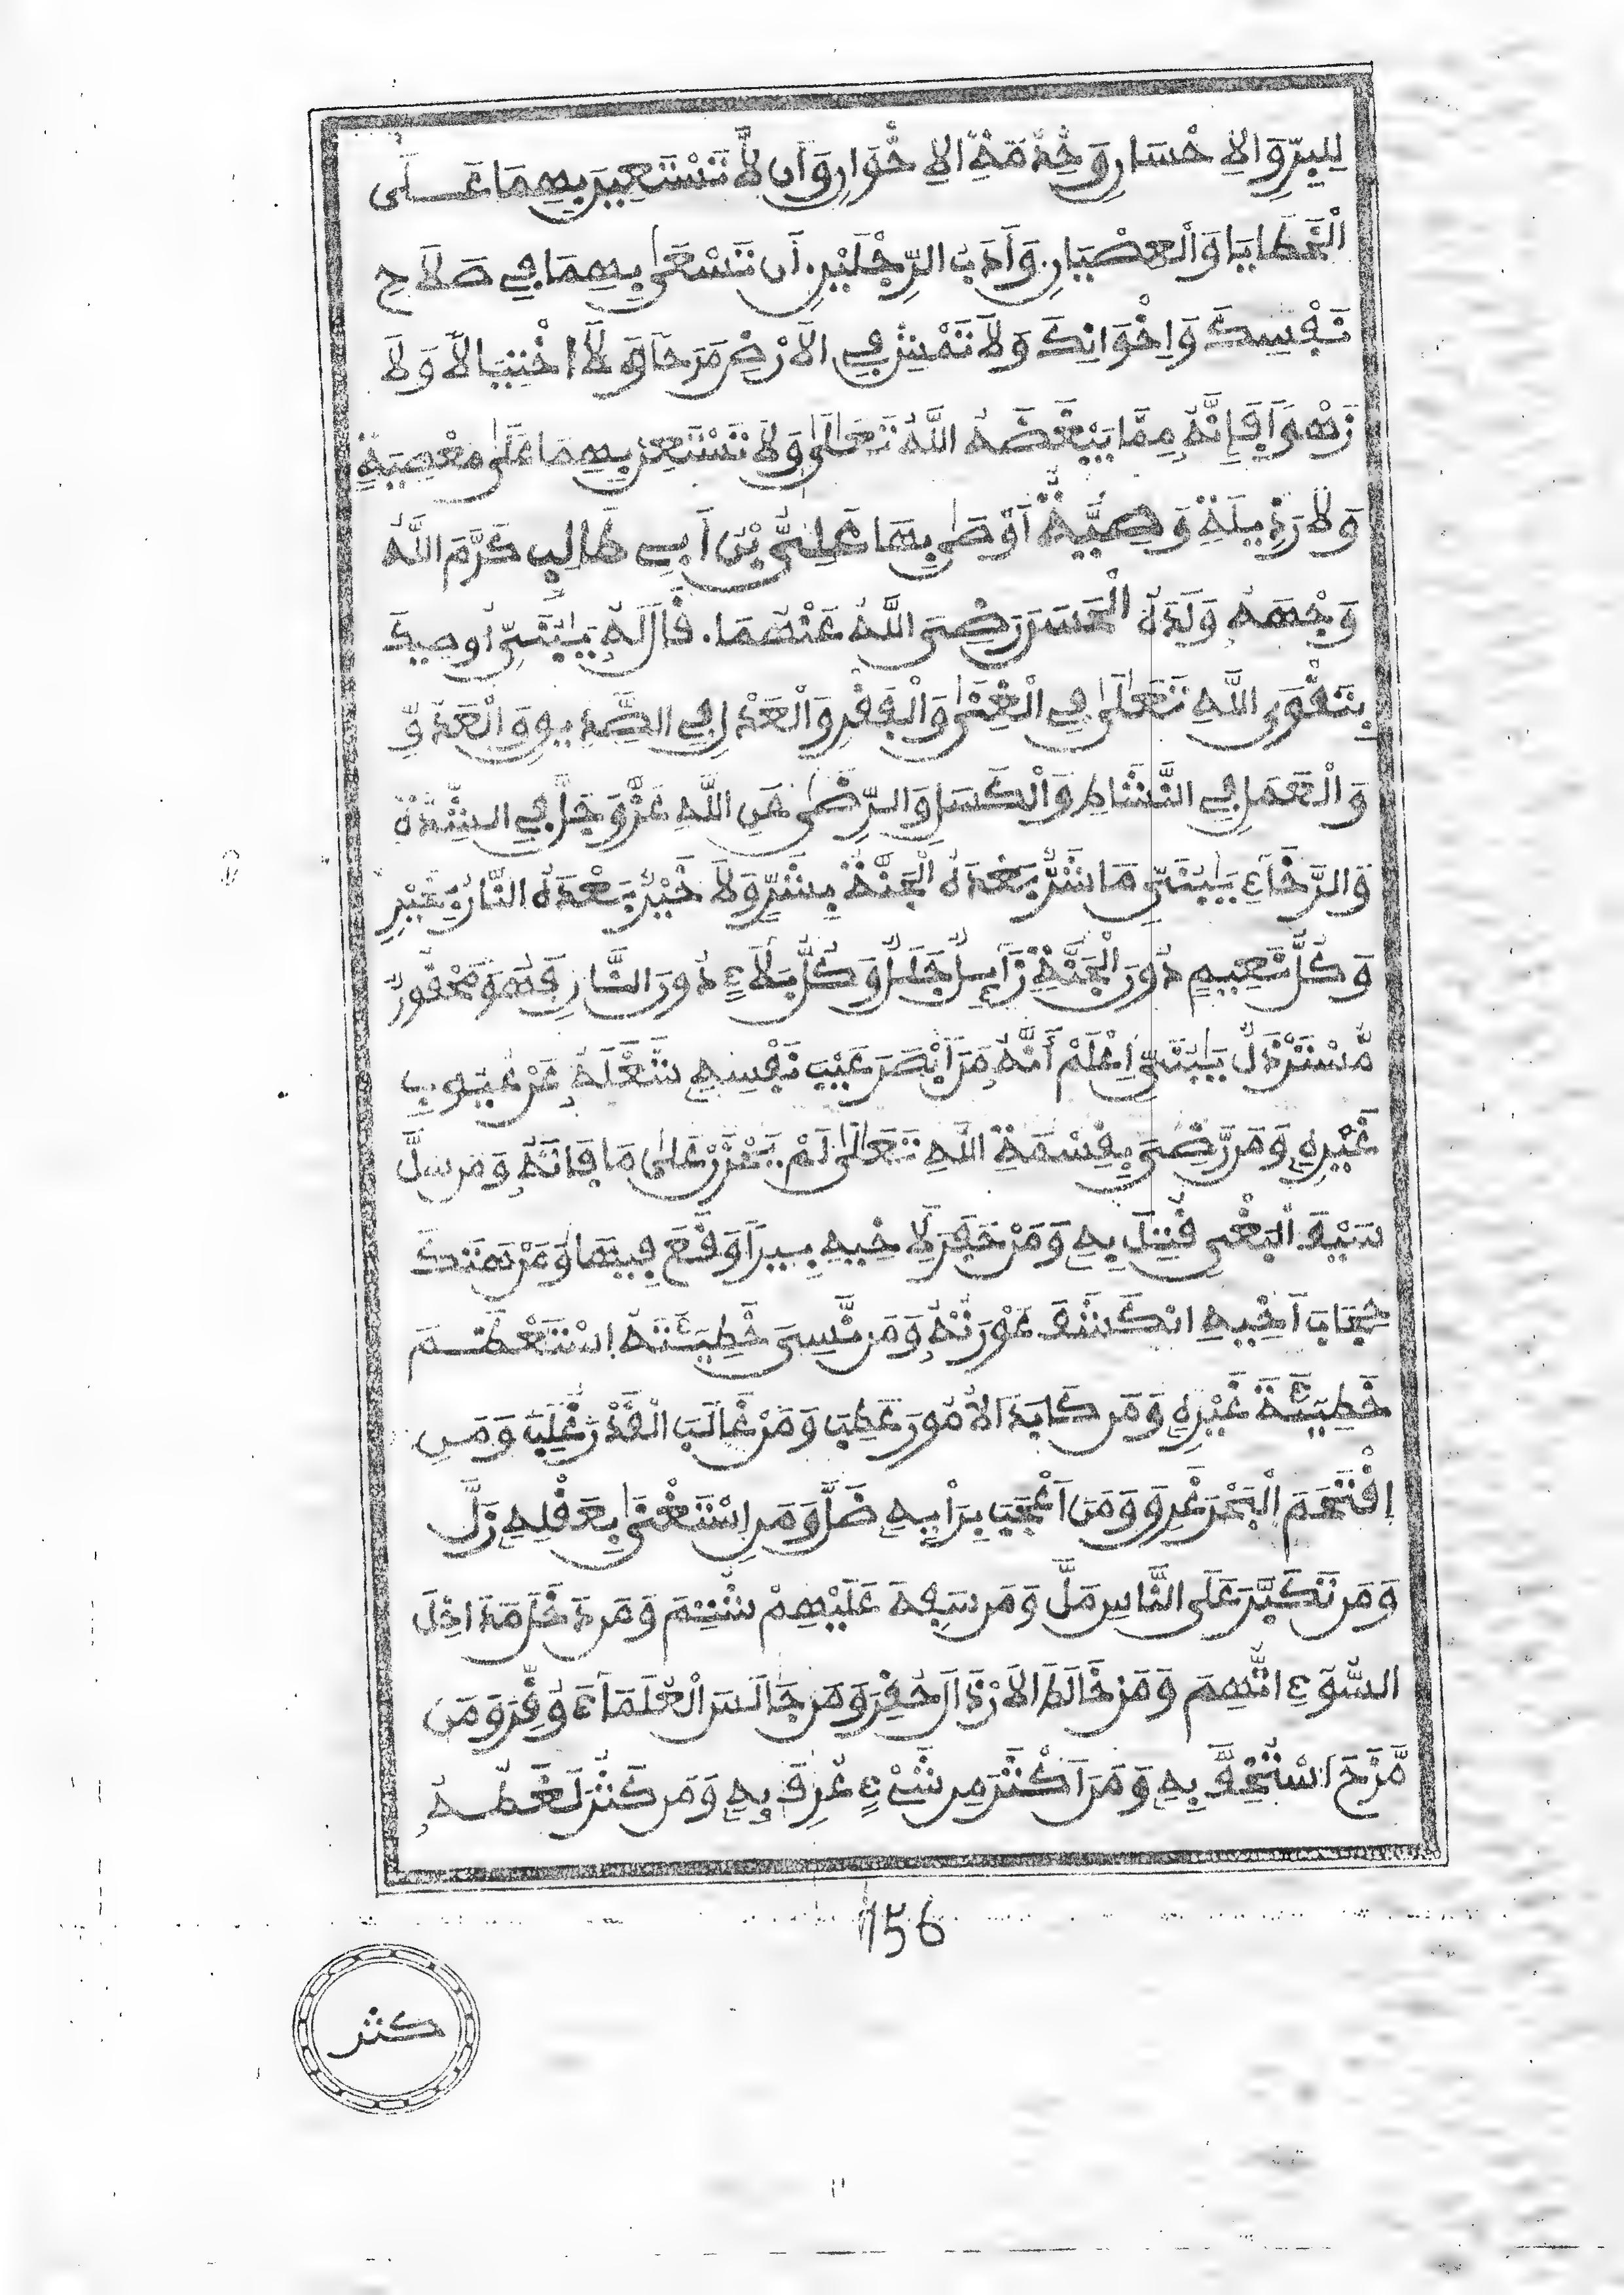 لِلْبِرِّ وَالاِحْسَانِ وَخِدْمَةِ الاِخْوَانِ وَأَن لاَّ تَسْتَعِينَ بِهِمَا عَلَى
الْخَطَايَا وَالْعِصْيَانِ. وَأَدَبُ الرِّجْلَيْنِ. أَن تَسْعَىٰ بِهِمَا فِي صَلاَحِ
نَفْسِكَ وَإِخْوَانِكَ وَلاَ تَمْشِ فِي الاَرْضِ مَرَحاً وَلاَ اخْتِيَالاً وَلاَ
زَهْواً فَإِنَّهُ مِمَّا يَبْغَضُهُ اللَّهُ تَعَالَىٰ وَلاَ تَسْتَعِنْ بِهِمَا عَلَىٰ مَعْصِيَةٍ
وَلاَ رَذِيلَةٍ وَصِيَّةٌ أَوْصَىٰ بِهَا عَلِيُّ بْنُ أَبِي طَالِبٍ كَرَّمَ اللَّهُ
وَجْهَهُ وَلَدَهُ الْحَسَنَ رَضِيَ اللَّهُ عَنْهُمَا. قَالَ لَهُ يَـٰبُنَيِّ أُوصِيكَ
بِتَقْوَى اللَّهِ تَعَلَىٰ فِي الْغِنَىٰ وَالْفَقْرِ وَالْعَدْلِ فِي الصَّدِيقِ وَالْعَدُوِّ
وَالْعَمَلِ فِي النَّشَاطِ وَالْكَسَلِ وَالرِّضَىٰ عَنِ اللَّهِ عَزَّ وَجَلَّ فِي الشِّدَّةِ
وَالرَّخَاءِ يَـٰبُنَيِّ مَا شَرٌّ بَعْدَهُ الْجَنَّةُ بِشَرٍّ وَلاَ خَيْرٌ بَعْدَهُ النَّارُ بِخَيْرٍ
وَكُلُّ نَعِيمٍ دُونَ الْجَنَّةِ زَآئِلٌ جَلَلٌ وَكُلُّ بَلاَءٍ دُونَ النَّارِ فَهُوَ مَحْقُورٌ
مُّسْتَرْذَلٌ يَـٰبُنَيِّ اِعْلَمْ أَنَّهُ مَنَ اَبْصَرَ عَيْبَ نَفْسِهِ شَغَلَهُ عَنْ عُيُوبِ
غَيْرِهِ وَمَن رَّضِيَ بِقِسْمَةِ اللَّهِ تَعَالَىٰ لَمْ يَحْزَنْ عَلَىٰ مَا فَاتَهُ وَمَن سَلَّ
سَيْفَ الْبَغْيِ قُتِلَ بِهِ وَمَنْ حَفَرَ لأَخِيهِ بِيراً وَقَعَ فِيهَا وَمَنْ هَتَكَ
حِجَابَ أَخِيهِ انْكَشَفَ عَوْرَتُهُ وَمَن نَّسِيَ خَطِيئَتَهُ اِسْتَعْظَمَ
خَطِيئَةَ غَيْرِهِ وَمَن كَابَدَ الاُمُورَ عَطِبَ وَمَنْ غَالَبَ الْقَدْرَ غُلِبَ وَمَنِ
اِقْتَحَمَ الْبَحْرَ غَرِقَ وَمَنَ اُعْجِبَ بِرَأْيِهِ ضَلَّ وَمَنِ اِسْتَغْنَىٰ بِعَقْلِهِ زَلَّ
وَمَن تَكَبَّرَ عَلَى النَّاسِ مَلَّ وَمَن سَفِهَ عَلَيْهِمْ شُتِمَ وَمَن دَخَلَ مَدَاخِلَ
السُّوءِ اتُّهِمَ وَمَنْ خَالَطَ الاَرْذَالَ حُقِرَ وَمَن جَالَسَ الْعُلَمَاءَ وُقِّرَ وَمَن
مَّزَحَ اَسْتُخِفَّ بِهِ وَمَنَ اَكْثَرَ مِن شَيْءٍ عُرِفَ بِهِ وَمَن كَثُرَ لَغَطُهُ
156
كثر